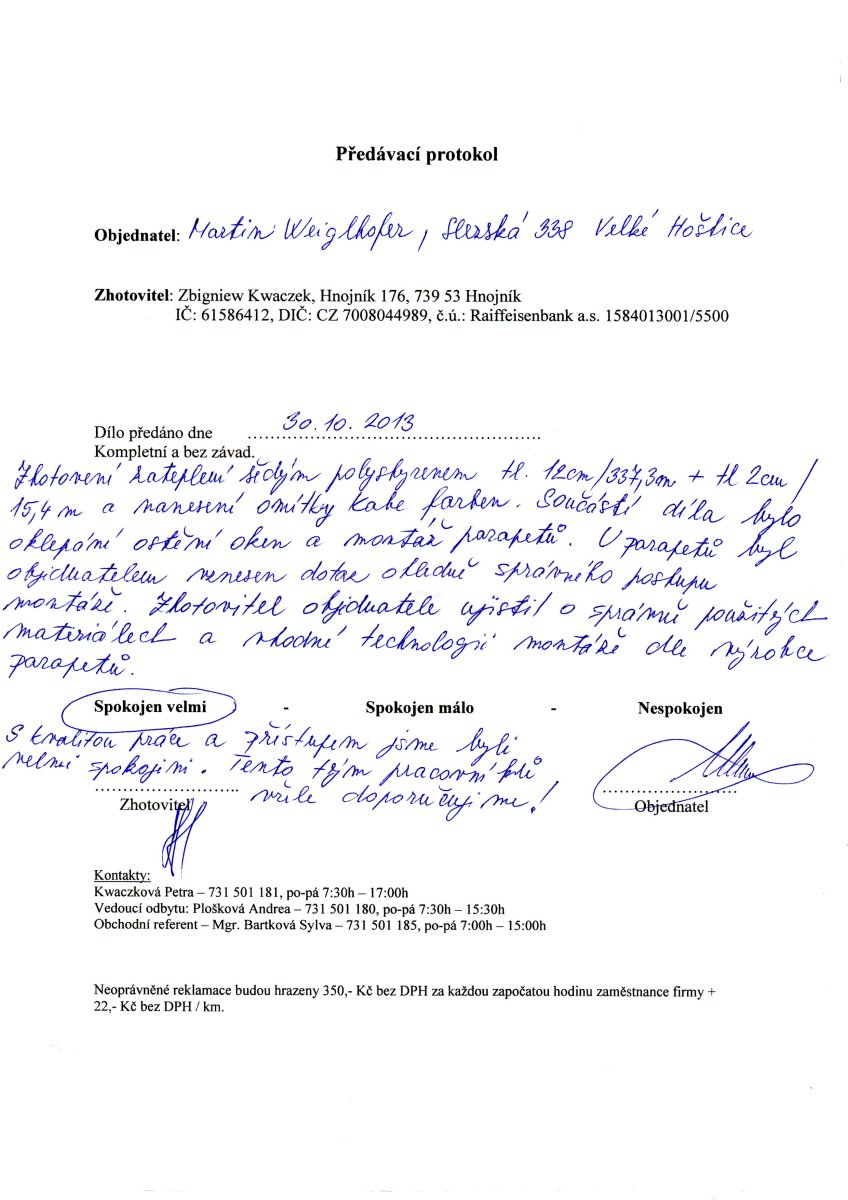 Předávací protokol
Objednatel: Martin Weiglhofer, Slezská 338 Velké Hoštice
Zhotovitel: Zbigniew Kwaczek, Hnojník 176, 739 53 Hnojník
IČ: 61586412, DIČ: CZ 7008044989, č.ú.: Raiffeisenbank a.s. 1584013001/5500
Dílo předáno dne 30.10.2013
Kompletní a bez závad.
Zhotovení zateplení šedým polystyrenem tl. 12cm/337,3m + tl 2cm/
15,4 m a nanesení omítky Kabe farben. Součástí díla bylo
oklepání ostění oken a montáž parapetů. U parapetů byl
objednatelem vznesen dotaz ohledně správného postupu
montáže. Zhotovitel objednatele ujistil o správně použitých
materiálech a vhodné technologii montáže dle výrobce
parapetů.
Spokojen velmi - Spokojen málo - Nespokojen
S kvalitou práce a přístupem jsme byli
velmi spokojini. Tento tým pracovníků
vřele doporučujeme!
Zhotovitel
Objednatel
Kontakty:
Kwaczková Petra – 731 501 181, po-pá 7:30h – 17:00h
Vedoucí odbytu: Plošková Andrea – 731 501 180, po-pá 7:30h – 15:30h
Obchodní referent – Mgr. Bartková Sylva – 731 501 185, po-pá 7:00h – 15:00h
Neoprávněné reklamace budou hrazeny 350,- Kč bez DPH za každou započatou hodinu zaměstnance firmy +
22,- Kč bez DPH / km.